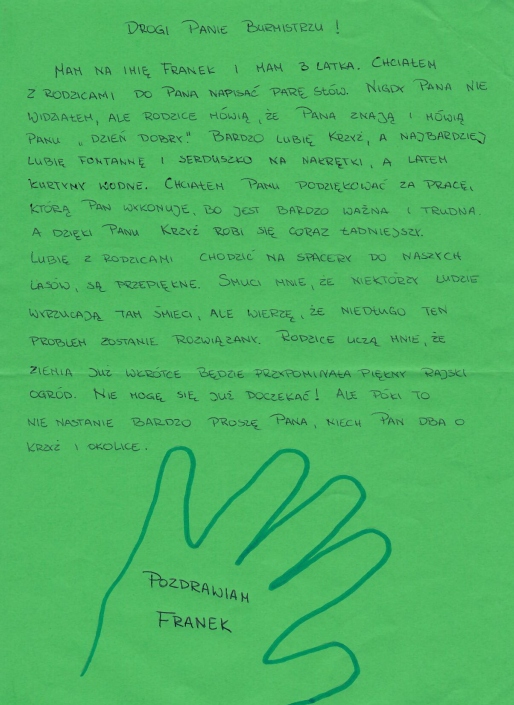 DROGI PANIE BURMISTRZU !
MAM NA IMIĘ FRANEK I MAM 3 LATKA. CHCIAŁEM
Z RODZICAMI DO PANA NAPISAĆ PARĘ SŁÓW. NIGDY PANA NIE
WIDZIAŁEM, ALE RODZICE MÓWIĄ, ŻE PANA ZNAJĄ I MÓWIĄ
PANU „DZIEŃ DOBRY." BARDZO LUBIĘ KRZYŻ, A NAJBARDZIEJ
LUBIĘ FONTANNĘ I SERDUSZKO NA NAKRĘTKI, A LATEM
KURTYNY WODNE. CHCIAŁEM PANU PODZIĘKOWAĆ ZA PRACĘ,
KTÓRĄ PAN WYKONUJE, BO JEST BARDZO WAŻNA I TRUDNA.
A DZIĘKI PANU KRZYŻ ROBI SIĘ CORAZ ŁADNIEJSZY.
LUBIĘ Z RODZICAMI CHODZIĆ NA SPACERY DO NASZYCH
LASÓW, SĄ PRZEPIĘKNE. SMUCI MNIE, ŻE NIEKTÓRZY LUDZIE
WYRZUCAJĄ TAM ŚMIECI, ALE WIERZĘ, ŻE NIEDŁUGO TEN
PROBLEM ZOSTANIE ROZWIĄZANY. RODZICE UCZĄ MNIE, ŻE
ZIEMIA JUŻ WKRÓTCE BĘDZIE PRZYPOMINAŁA PIĘKNY RAJSKI
OGRÓD. NIE MOGĘ SIĘ JUŻ DOCZEKAĆ! ALE PÓKI TO
NIE NASTANIE BARDZO PROSZĘ PANA, NIECH PAN DBA O
KRZYŻ I OKOLICE.
POZDRAWIAM
FRANEK